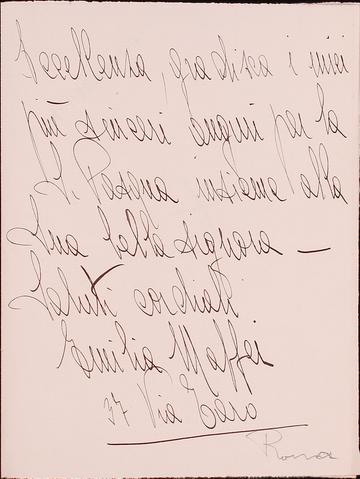 Eccellenza, gradisca i miei
più sinceri auguri per la
S. Pasqua insieme alla
Sua bella signora —
Saluti cordiali
Emilia Maffei
37 Via Taro
Roma